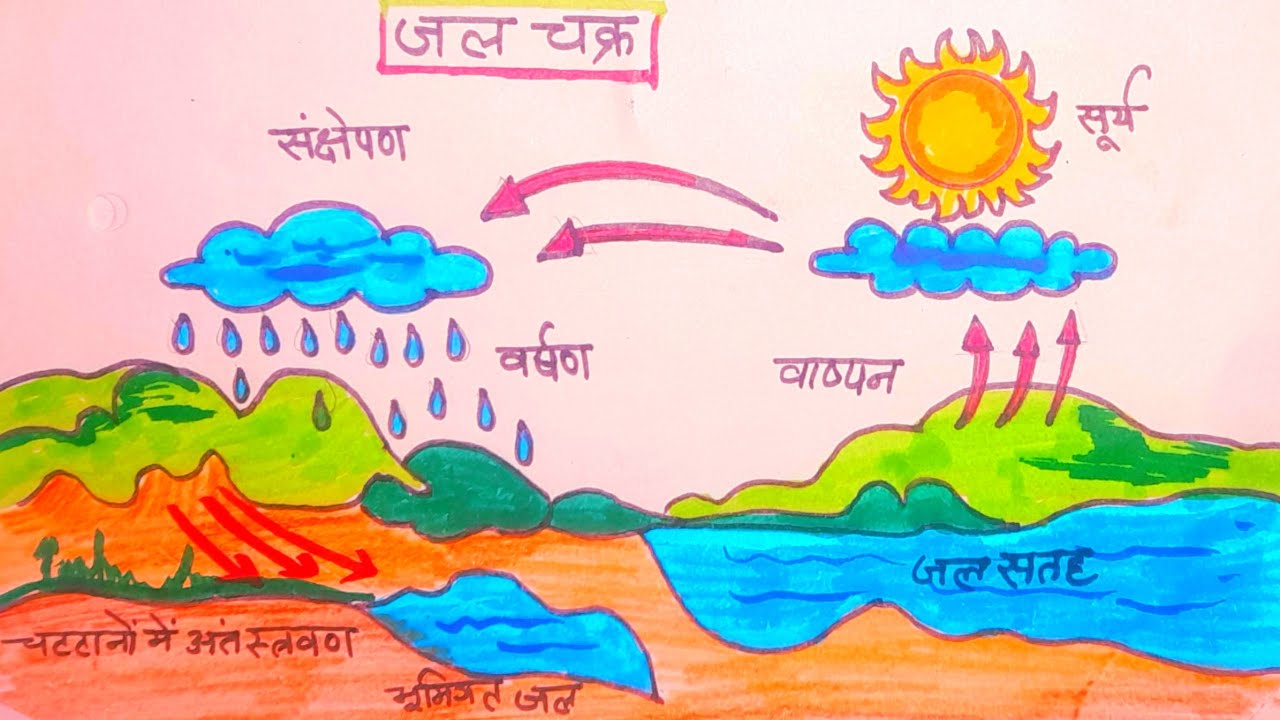 जल चक्र
सूर्य
संक्षेपण
वर्षण
वाष्पन
जल सतह
चटटानों में अंतस्त्रवण
भूमिगत जल